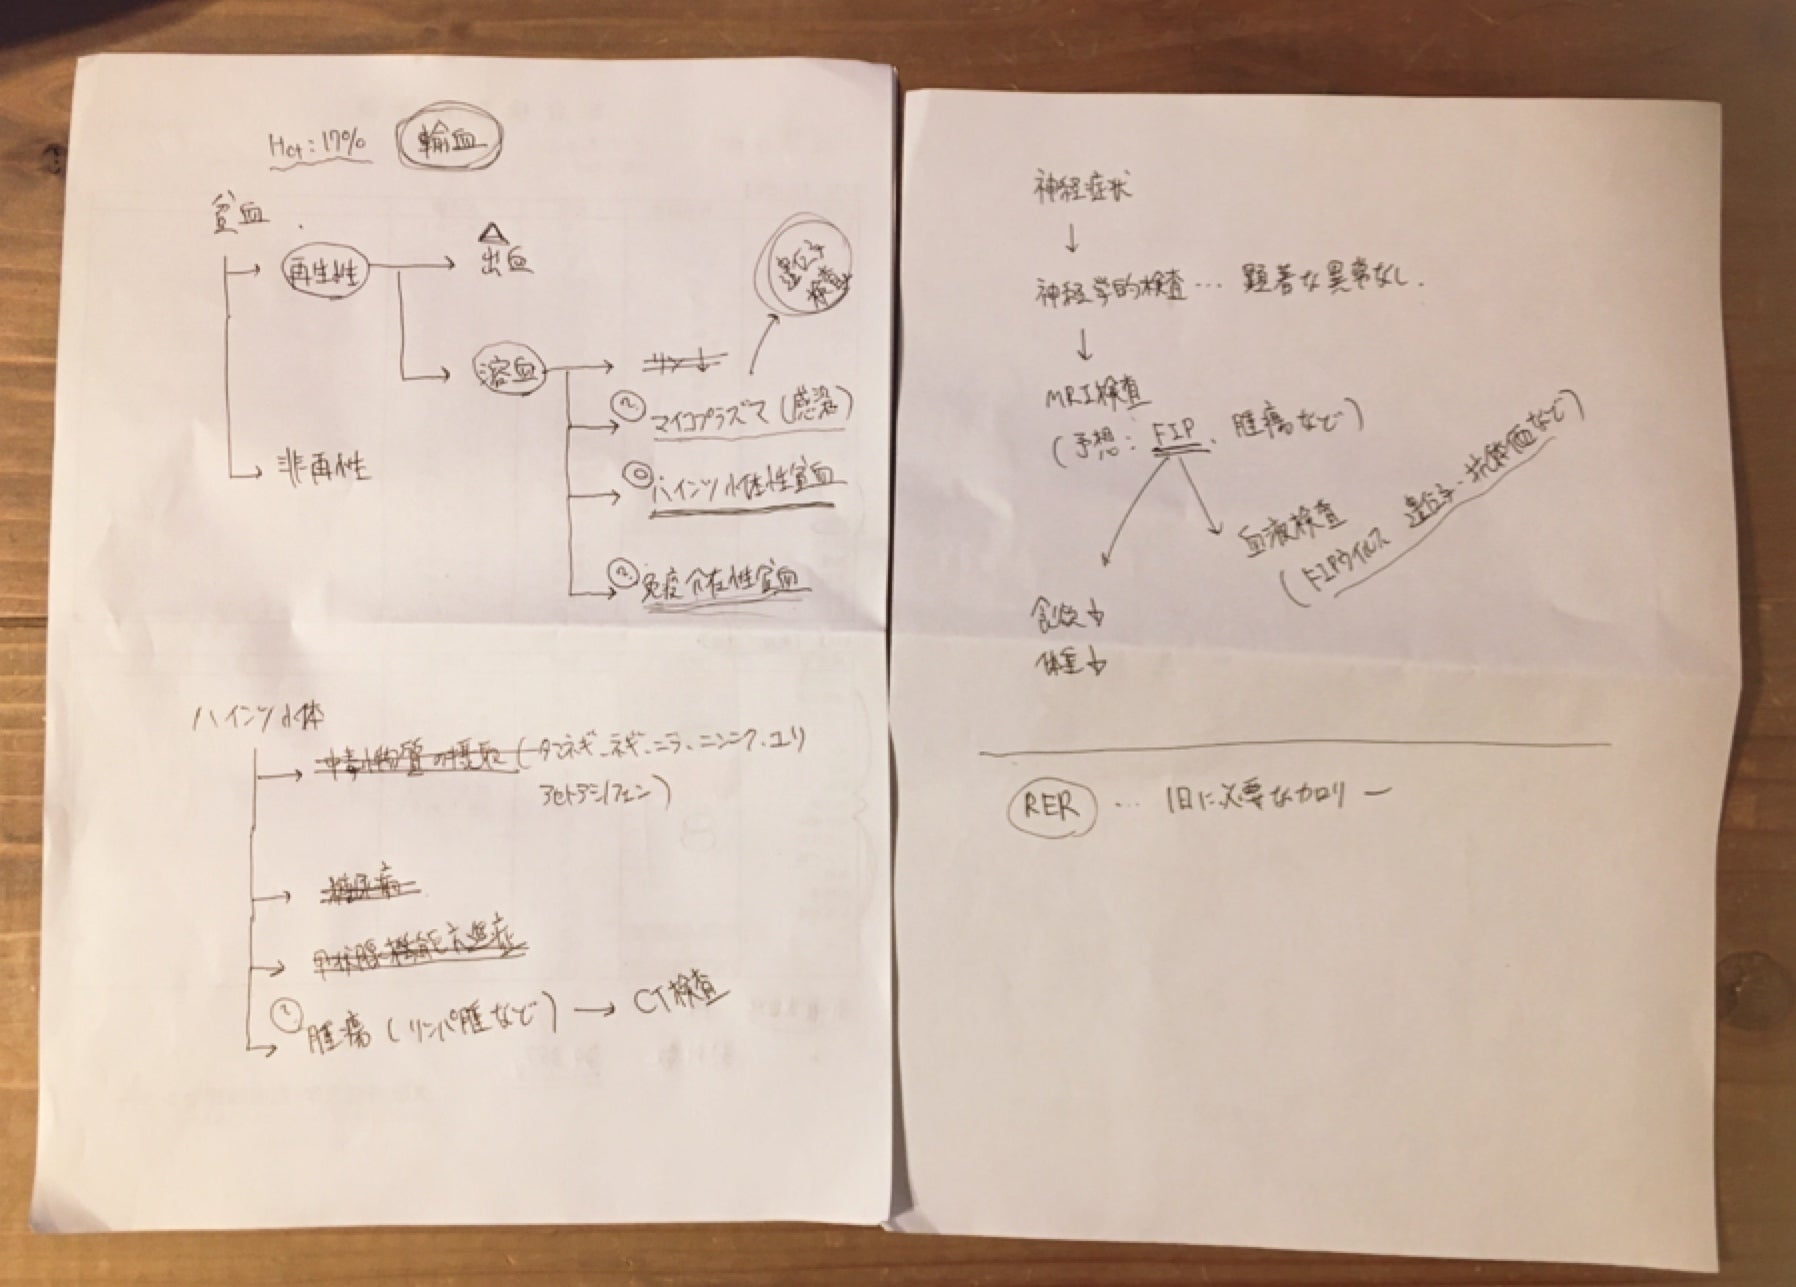 Hct：17% 輸血
貧血
再生性
△
出血
遺伝子
検査
溶血
リン↓
? マイコプラズマ（感染）
◎ ハインツ小体性貧血
? 免疫介在性貧血
非再生性
ハインツ小体
中毒性物質の摂取（タマネギ、ネギ、ニラ、ニンニク、ユリ
アセトアミノフェン）
糖尿病
甲状腺機能亢進症
? 腫瘍（リンパ腫など）→ CT検査
神経症状
↓
神経学的検査… 顕著な異常なし．
↓
MRI検査
（予想：FIP、腫瘍など）
血液検査
（FIPウイルス 遺伝子・抗体価など）
食欲↓
体重↓
RER … 1日に必要なカロリー